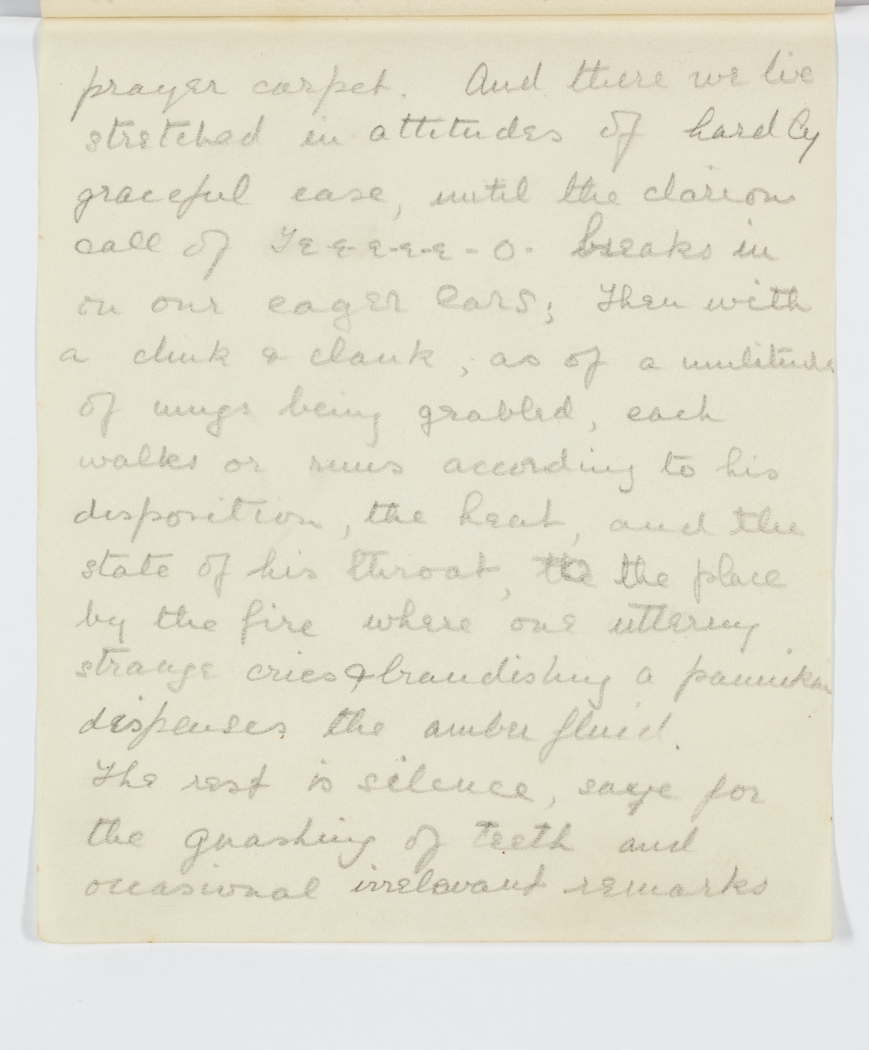 prayer carpet. And there we lie
stretched in attitudes of hardly
graceful ease, until the clarion
call of Te-e-e-e-e-o- breaks in
on our eager ears; then with
a clink & clank, as of a multitude
of mugs being grabbed, each
walks or runs according to his
disposition, the heat, and the
state of his throat, to the place
by the fire where one uttering
strange cries & brandishing a pannikin
dispenses the amber fluid.
The rest is silence, save for
the gnashing of teeth and
occasional irrelevant remarks